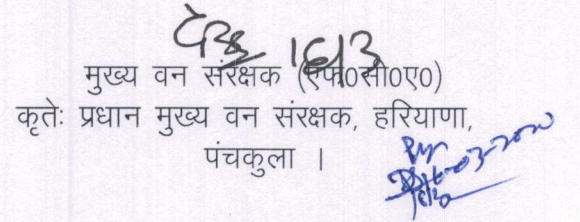 16/3
मुख्य वन संरक्षक (एफ0सी0ए0)
कृतेः प्रधान मुख्य वन संरक्षक, हरियाणा,
पंचकुला ।